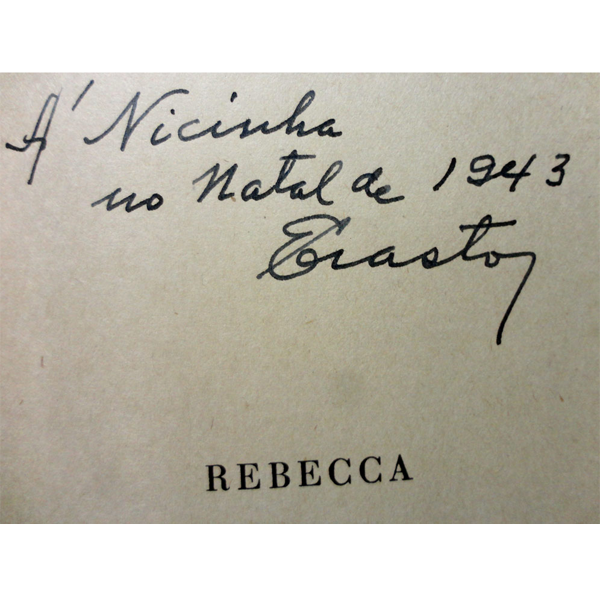 Á Nicinha
no Natal de 1943
Erasto
REBECCA